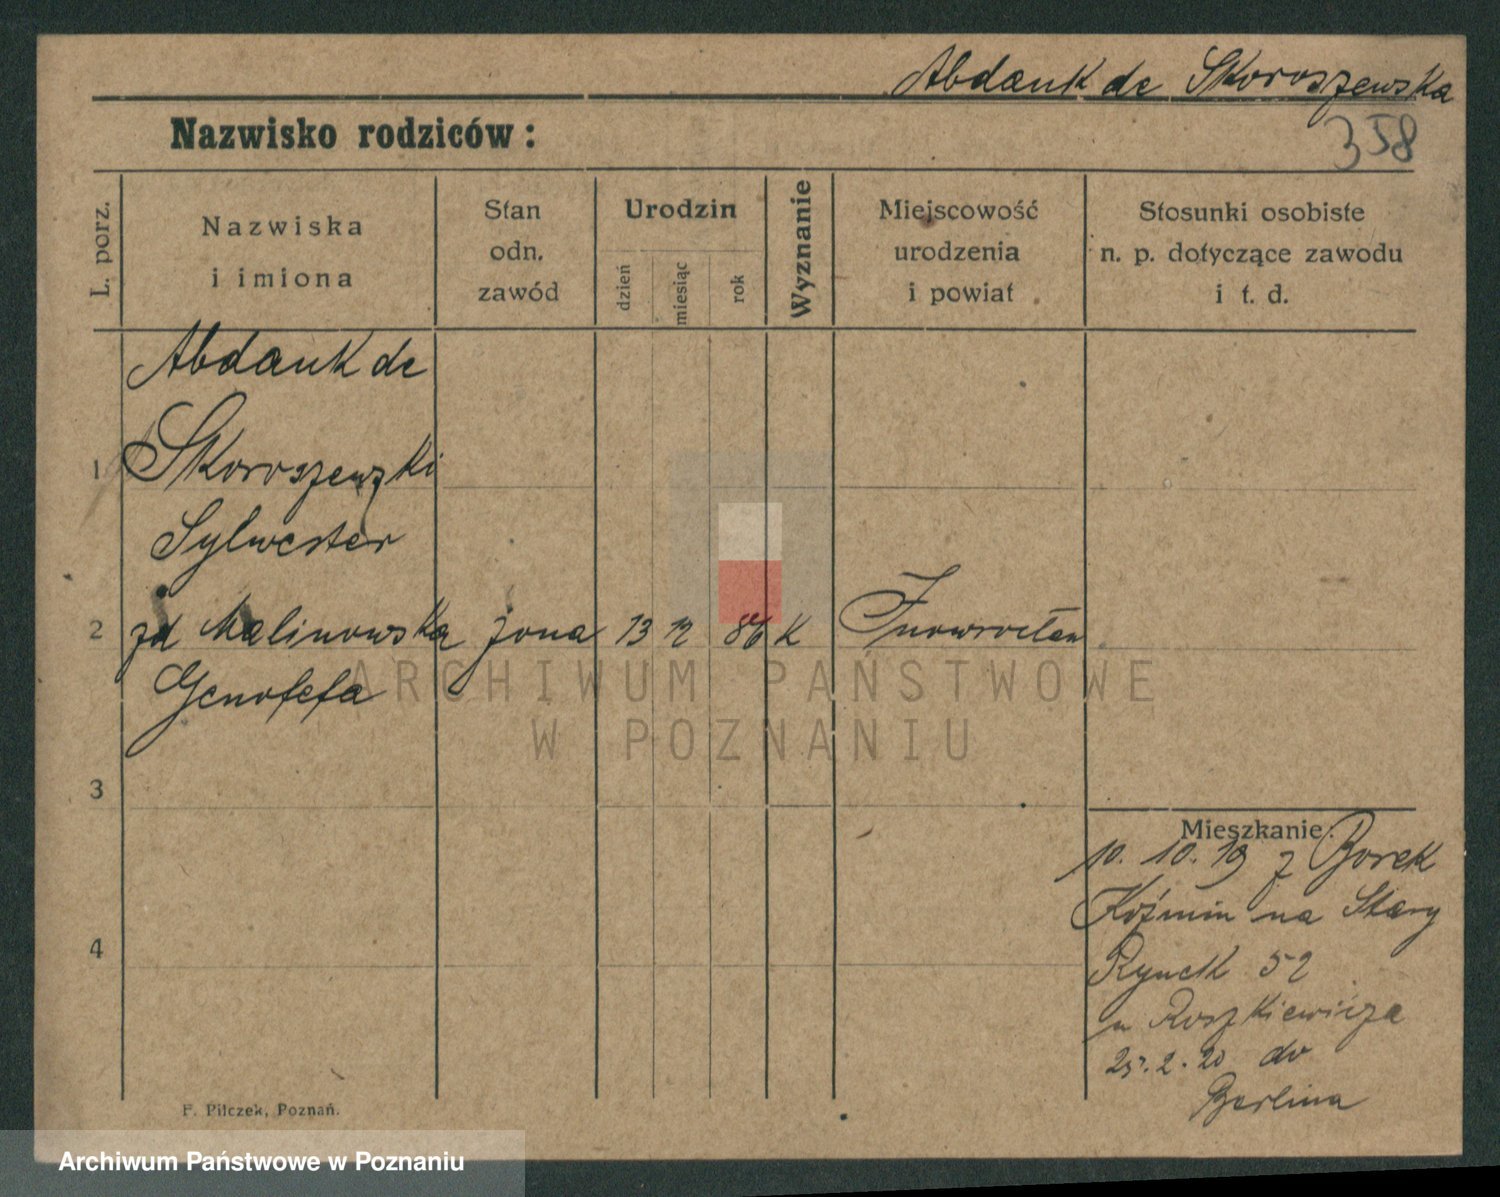 Abdank de Skoroszewska
358
Nazwisko rodziców:
L. porz.
Nazwiska
i imiona
Stan
odn.
zawód
Urodzin
dzień
miesiąc
rok
Wyznanie
Miejscowość
urodzenia
i powiat
Stosunki osobiste
n. p. dotyczące zawodu
i t. d.
Abdank de
1 Skoroszewski
Sylwester
2 zd Malinowska żona 13 12 86 K Inowrocław
Genofefa
3
4
Mieszkanie:
10. 10. 19 z Borek
Koźmin na Stary
Rynek 52
u Roszkiewicza
25. 2. 20 do
Berlina
F. Pilczek, Poznań.
ARCHIWUM PAŃSTWOWE
W POZNANIU
Archiwum Państwowe w Poznaniu